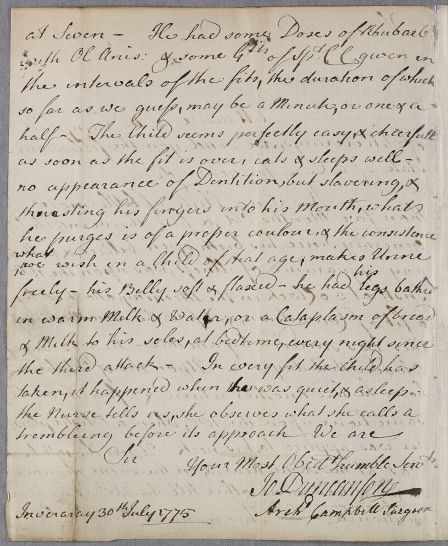 at Seven - He had some Doses of Rhubarb
with Ol. Anis: & some Gtts of Sp: CC given in
the intervals of the fits, the duration of which
so far as we guess, may be a Minute, or one & a
half - The Child seems perfectly easy, & chearfull
as soon as the fit is over, eats & sleeps well -
no appearance of Dentition, but slavering, &
thrusting his fingers into his Mouth, what
he purges is of a proper coulour, & the consistence
what
we wish in a Child of that age, makes Urine
his
freely - his Belly soft & flaxed - he had legs bathed
in warm Milk & Water, or a Cataplasm of bread
& Milk to his soles, at bedtime, every night since
the third attack - In every fit the Child has
taken, it happened when he was quiet, & asleep
the Nurse tells us, she observes what she calls a
trembleing before its approach We are
Sir
Your Most Obedt humble Servts
Jo Duncanson
Archd Campbell Surgeon
Inveraray 30th July 1775